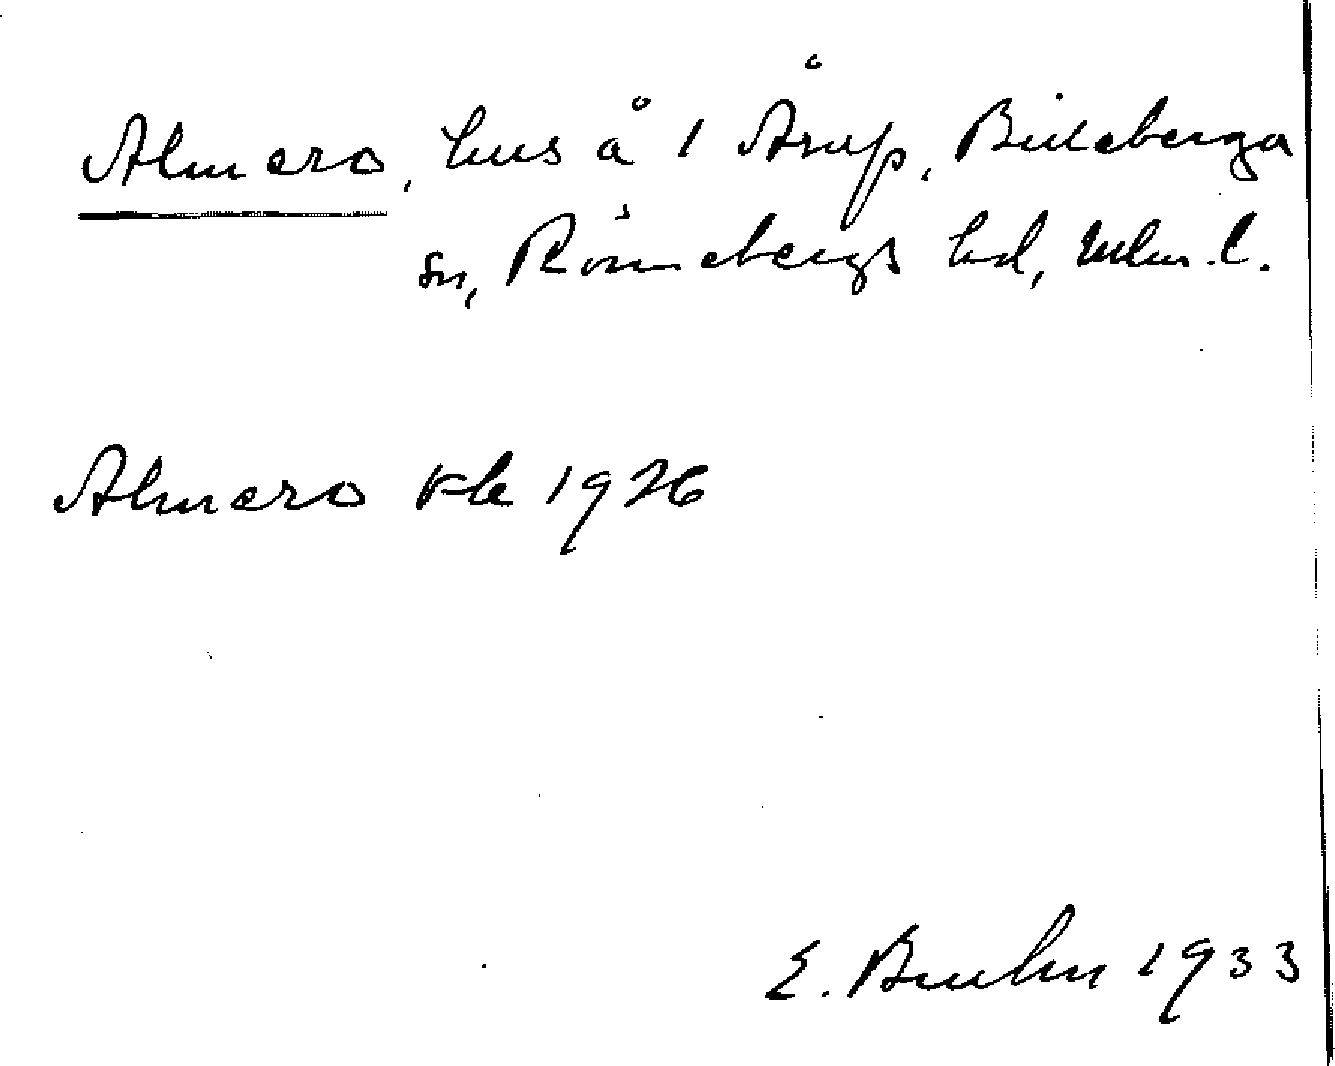 Almero, hus å 1 Årup, Billeberga
sn, Rönnebergs hd, Mlm. l.
Almero Kbl 1926
E. Bruhn 1933